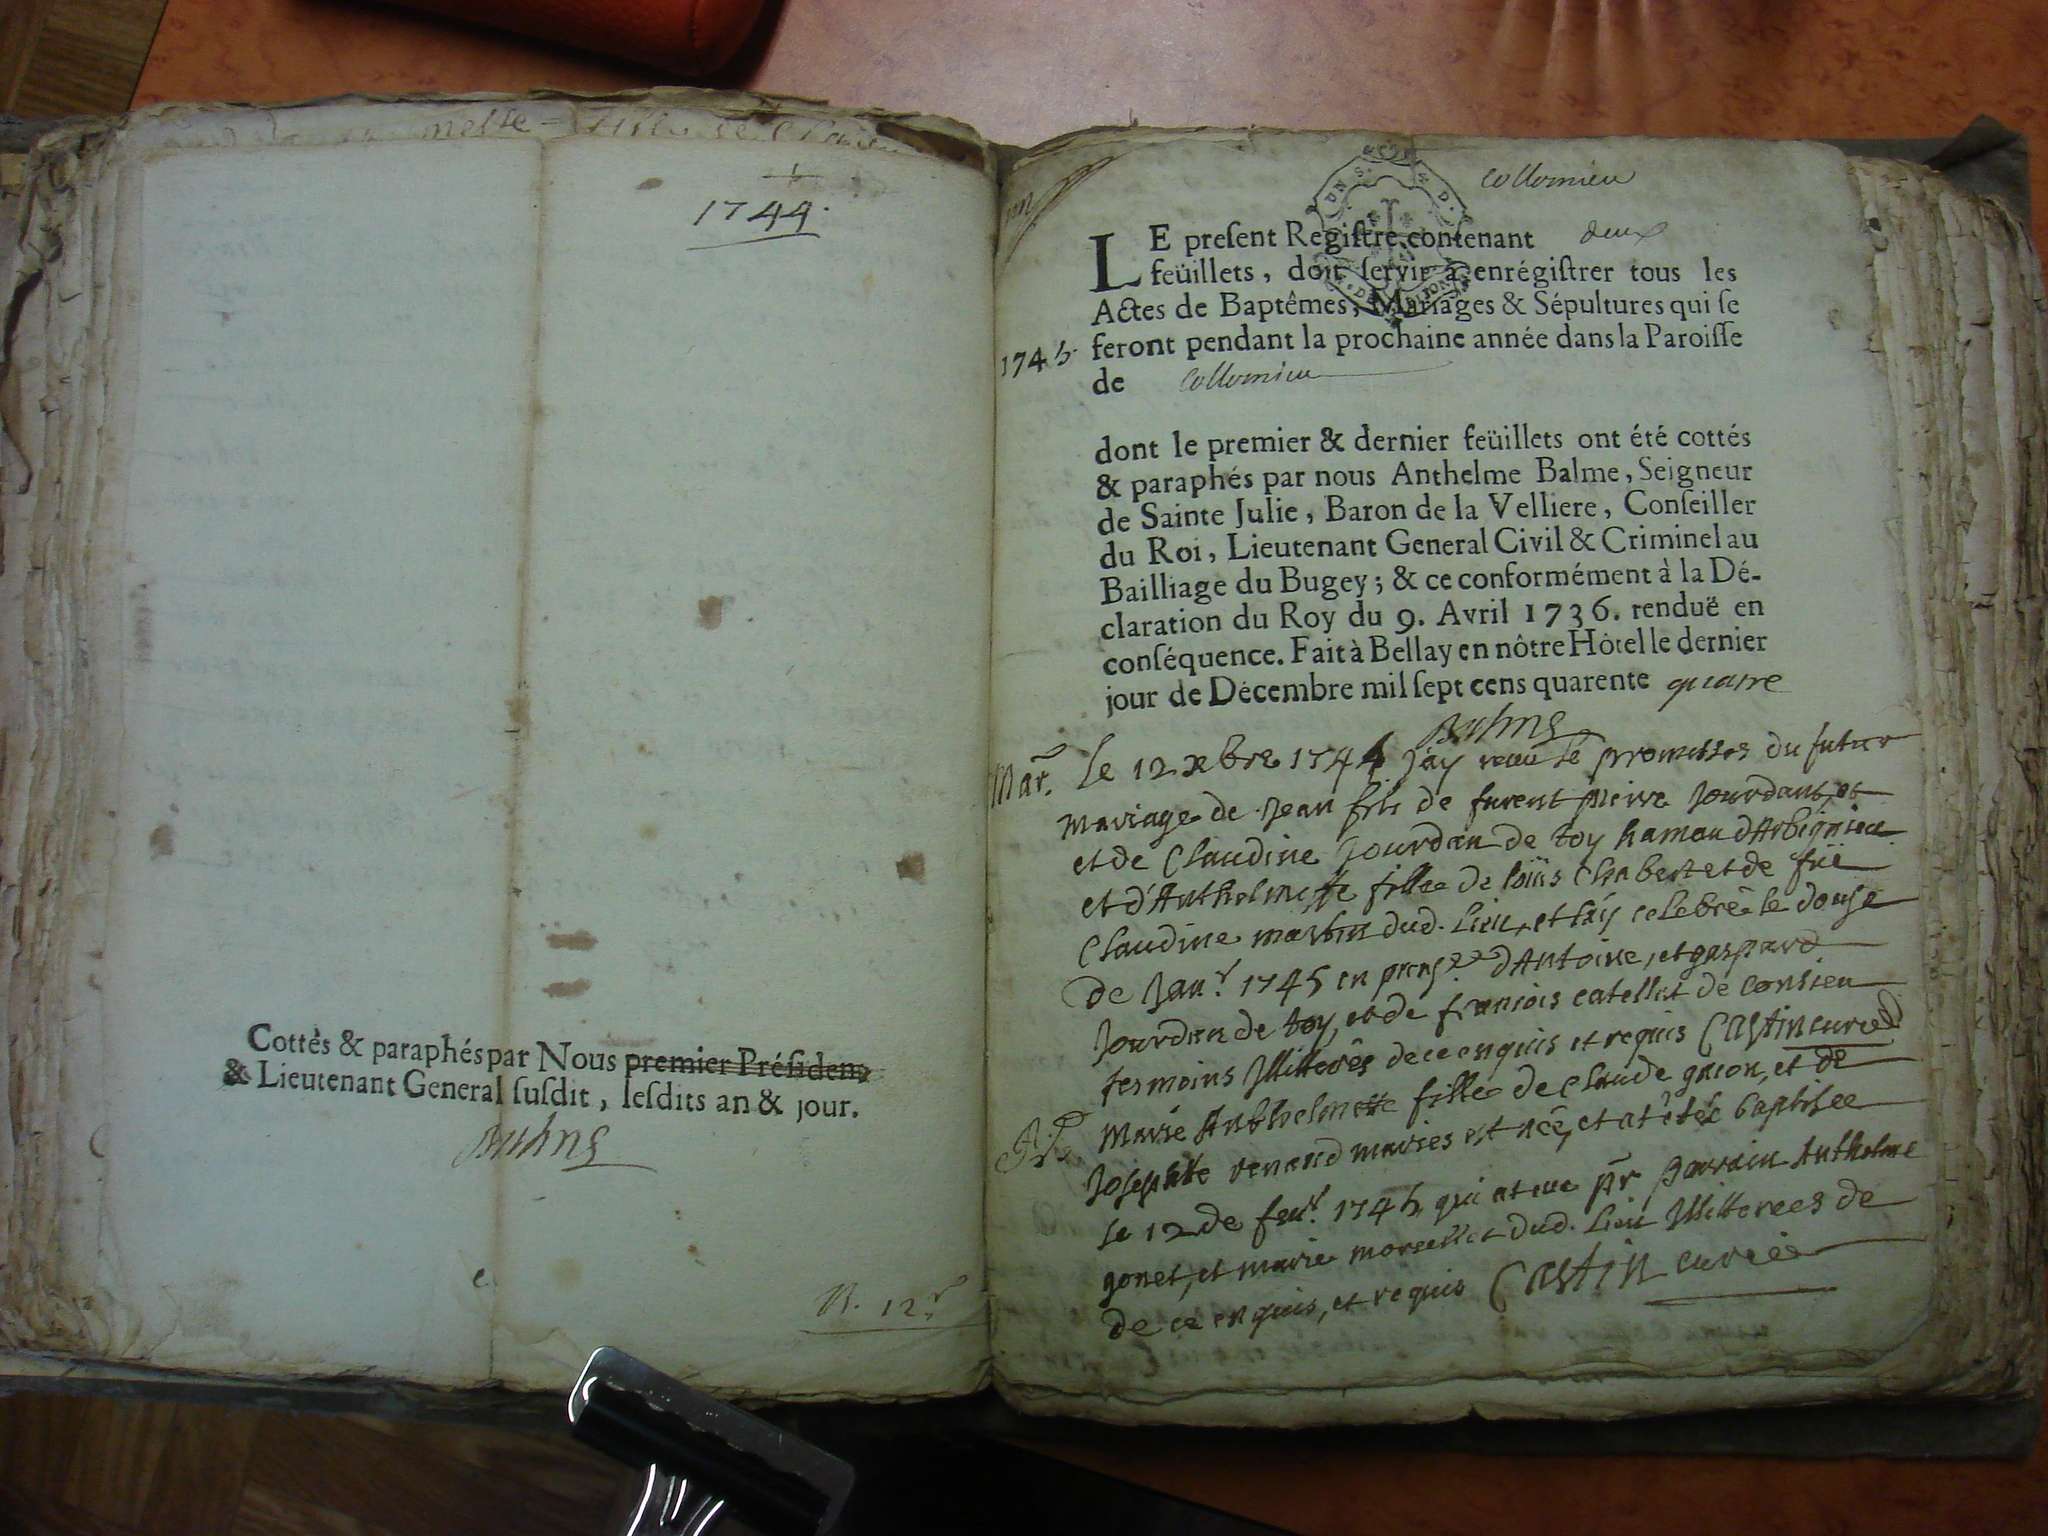 1744.
Cottés & paraphés par Nous premier Présiden
& Lieutenant General susdit, lesdits an & jour.
R. 12.
Collomieu
LE present Registre contenant deux
feüillets, doit servir à enrégistrer tous les
Actes de Baptêmes, Mariages & Sépultures qui se
feront pendant la prochaine année dans la Paroisse
1745.
de Collomieu
dont le premier & dernier feüillets ont été cottés
& paraphés par nous Anthelme Balme, Seigneur
de Sainte Julie, Baron de la Velliere, Conseiller
du Roi, Lieutenant General Civil & Criminel au
Bailliage du Bugey; & ce conformément à la Dé-
claration du Roy du 9. Avril 1736. renduë en
conséquence. Fait à Bellay en nôtre Hôtel le dernier
jour de Décembre mil sept cens quarente quatre
Mar. Le 12 xbre 1744 j'ay receu le promesses du futur
mariage de Jean fils de furent pierre Jourdan, et
et de Claudine Jourdan de toy hamau d'Arbignieu
et d'Anthelmette fillee de loüis Chabert et de füe
Claudine martin dud. Lieu, et l'ay celebré le douse
de Janr. 1745 en pnse d'Antoine, et gaspard
Jourdan de toy, et de francois catellut de Consieu
tesmoins Illiterés de ce enquis et requis Castin curé
Marie Anthelmette fillee de Claude guion, et de
Josephte renand mariés est née, et at étéé baptisee
le 12 de feur. 1745, qui at eue pr parrain Anthelme
gonet, et marie morsellet dud. Lieu Illiterees de
de ce enquis, et requis Castin curéé